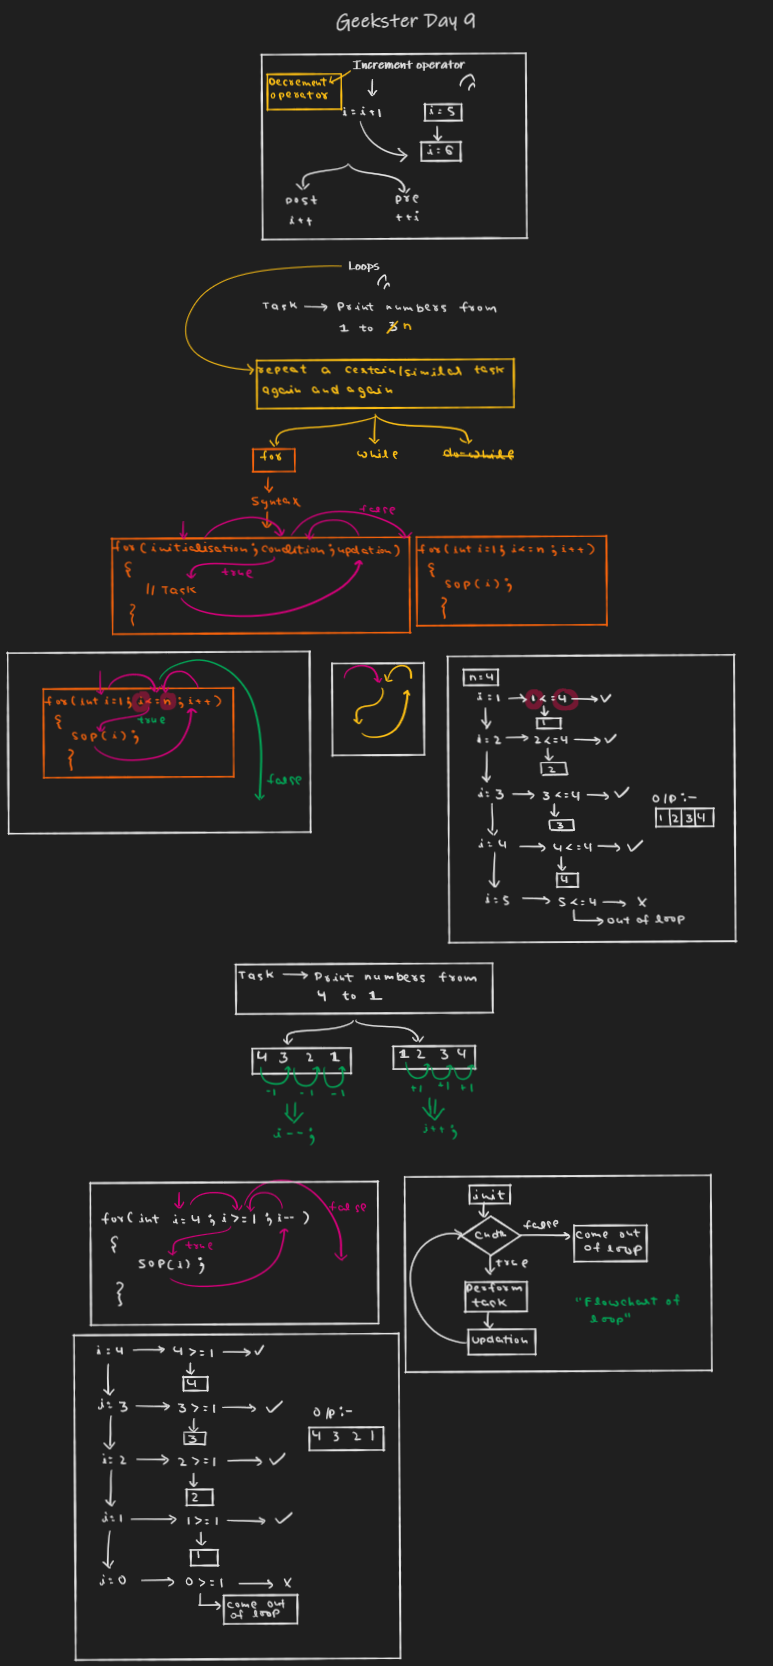 Geekster Day 9
Increment operator
Decrement
operator
i=i+1
i=5
i=6
post
pre
i++
++i
Loops
Task → Print numbers from
1 to 3 n
repeat a certain/similar task
again and again
for
while
do-while
Syntax
false
for(initialisation;condition;updation)
{
true
// Task
}
for(int i=1; i<=n ; i++)
{
SOP(i);
}
for(int i=1; i<=n; i++)
{
true
SOP(i);
}
false
n=4
i=1 → 1<=4 → ✓
1
i=2 → 2<=4 → ✓
2
i=3 → 3<=4 → ✓
3
O/P :-
1 2 3 4
i=4 → 4<=4 → ✓
4
i=5 → 5<=4 → X
out of loop
Task → Print numbers from
4 to 1
4 3 2 1
1 2 3 4
-1 -1 -1
+1 +1 +1
i--;
i++;
for(int i=4; i>=1; i--)
{
true
SOP(i);
}
false
init
cndn
false
come out
of loop
true
perform
task
updation
"Flowchart of
loop"
i=4 → 4>=1 → ✓
4
i=3 → 3>=1 → ✓
3
O/P :-
4 3 2 1
i=2 → 2>=1 → ✓
2
i=1 → 1>=1 → ✓
1
i=0 → 0>=1 → X
come out
of loop